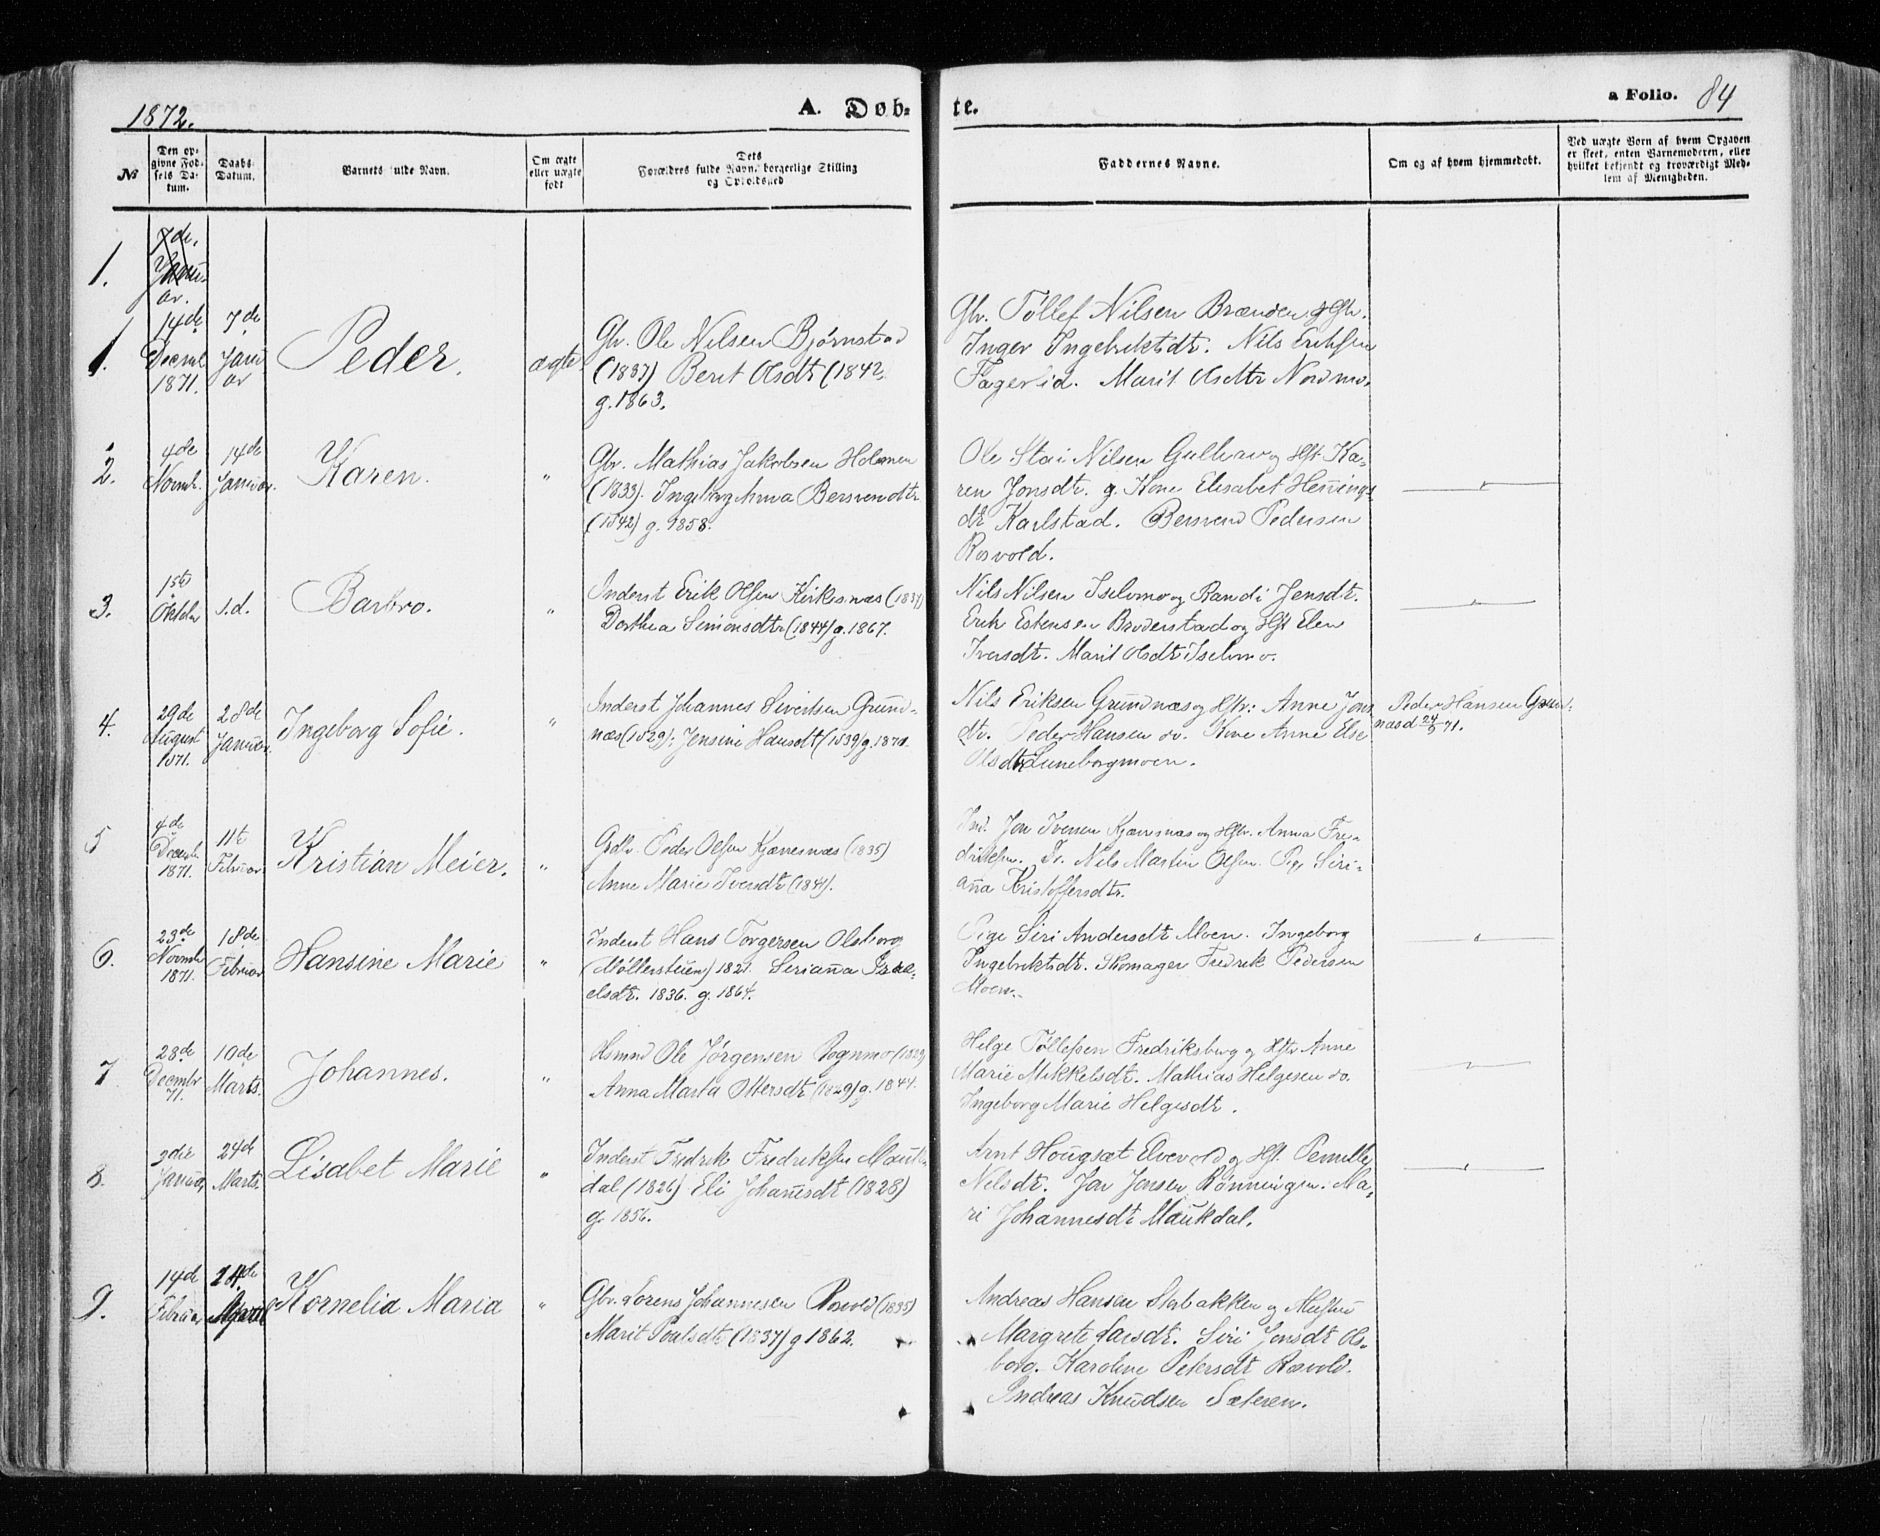 1872.
A. Døb-
te.
a Folio. 84
No
Den op-
givne Fød-
sels Da-
tum.
Daabs-
Datum.
Barnets fulde Navn.
Om ægte
eller uægte
født
Dets
Forældres fulde Navn, borgerlige Stilling
og Opholdssted
Faddernes Navne.
Om og af hvem hjemmedøbt.
Ved uægte Børn af hvem Opgaven
er skeet, enten Barnemoderen, eller
hvilket bekjendt og troværdigt Med-
lem af Menigheden.
1.
7de.
Janu-
ar.
1.
14de
Decmb
1871.
7de
Janu
ar
Peder.
ægte
Gbr. Ole Nilsen Bjørnstad
(1837) Berit Olsdt (1842
g. 1863.
Gbr. Tøllef Nilsen Brænden og Hst.
Inger Ingebriktsdt. Nils Eriksen
Fagerlid. Marit Olsdtr Nordmo.
2.
4de
Novmb.
14de
Januar.
Karen.
"
Gbr. Mathias Jakobsen Holmen
(1833). Ingeborg Anna Bersvendtr
(1842) g. 1858.
Ole Stai Nilsen Gulhav og Hst Ka-
ren Jonsdt. g. Kone Elisabet Hennings-
dt Karlstad. Bersvend Pedersen
Rosvold.
3.
1ste
Oktober
s.d.
Barbro.
"
Inderst Erik Olsen Kirkesnæs (1837)
Dorthea Simonsdtr (1844) g. 1867.
Nils Nilsen Iselvmo og Randi Jensdt.
Erik Estensen Broderstad og Hst Elen
Iversdt. Marit Olsdt Iselvmo.
4.
29de
August
1871.
28de
Januar.
Ingeborg Sofie.
"
Inderst Johannes Sivertsen Grund-
næs (1829): Jensine Hansdt (1839) g. 1870.
Nils Eriksen Grundnæs og Hstr: Anne Jons
dt. Peder Hansen do. Kone Anne Else
Olsdt Luneborgmoen.
Peder Hansen Grund-
næs d 24/9 71.
5
4de
Decmb.
1871.
11te
Februar
Kristian Meier.
"
Gdbr. Peder Olsen Kjærresnæs (1835)
Anne Marie Iversdt (1841).
Ind. Jon Iversen Kjærresnæs og Hstr. Anna Fre-
driksen. Nils Martin Olsen. Pige Seri-
anna Kristoffersdtr.
6.
23de
Novmb
1871.
18de
Februar
Hansine Marie
"
Inderst Hans Torgersen Olsborg
(Møllerstuen) 1821. Serianna Isra-
elsdt. 1836. g. 1864.
Pige Siri Andersdt Moen. Ingeborg
Ingebriktsdt. Skomager Fredrik Pedersen
Moen.
7
28de
Decmbr
71.
10de
Marts.
Johannes.
"
Ole Jørgensen Rognmo (1829
Anna Marta Ottersdt (1829) g. 1844.
Helge Tøllefsen Fredriksberg og Hstr Anne
Marie Mikkelsdt. Mathias Helgesen do.
Ingeborg Marie Helgesdt.
8.
3die
Januar
24de
Marts
Lisabet Marie
"
Inderst Fredrik Fredriksen Mauk-
dal (1826) Eli Johannesdt (1828)
g. 1856.
Arnt Hougsæt Elvevold og Hst. Pernille
Nilsdt. Jon Jonsen Rønningen. Ma-
ri Johannesdt Maukdal.
9.
14de
Februar
24de
Marts
Kornelia Maria
"
Gbr. Lorens Johannesen Rosvold (1835)
Marit Poulsdt (1837) g 1862.
Andreas Hansen Storbakken og Hustru
Margrete Larsdt. Siri Jonsdt Ols-
borg. Karoline Petersdt Rosvold.
Andreas Knudsen Sæteren.